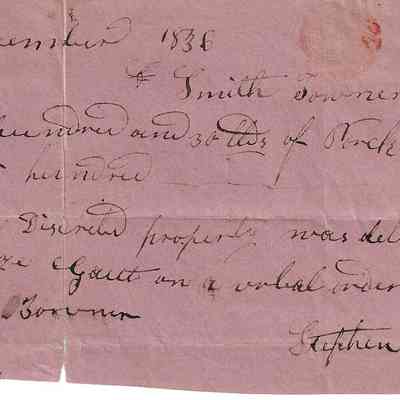 cember 1836
& Smith Towner
hundred and 30 lbs of Pork
hundred
Discribd property was del
Gault on a verbal order
Towner
Stephen